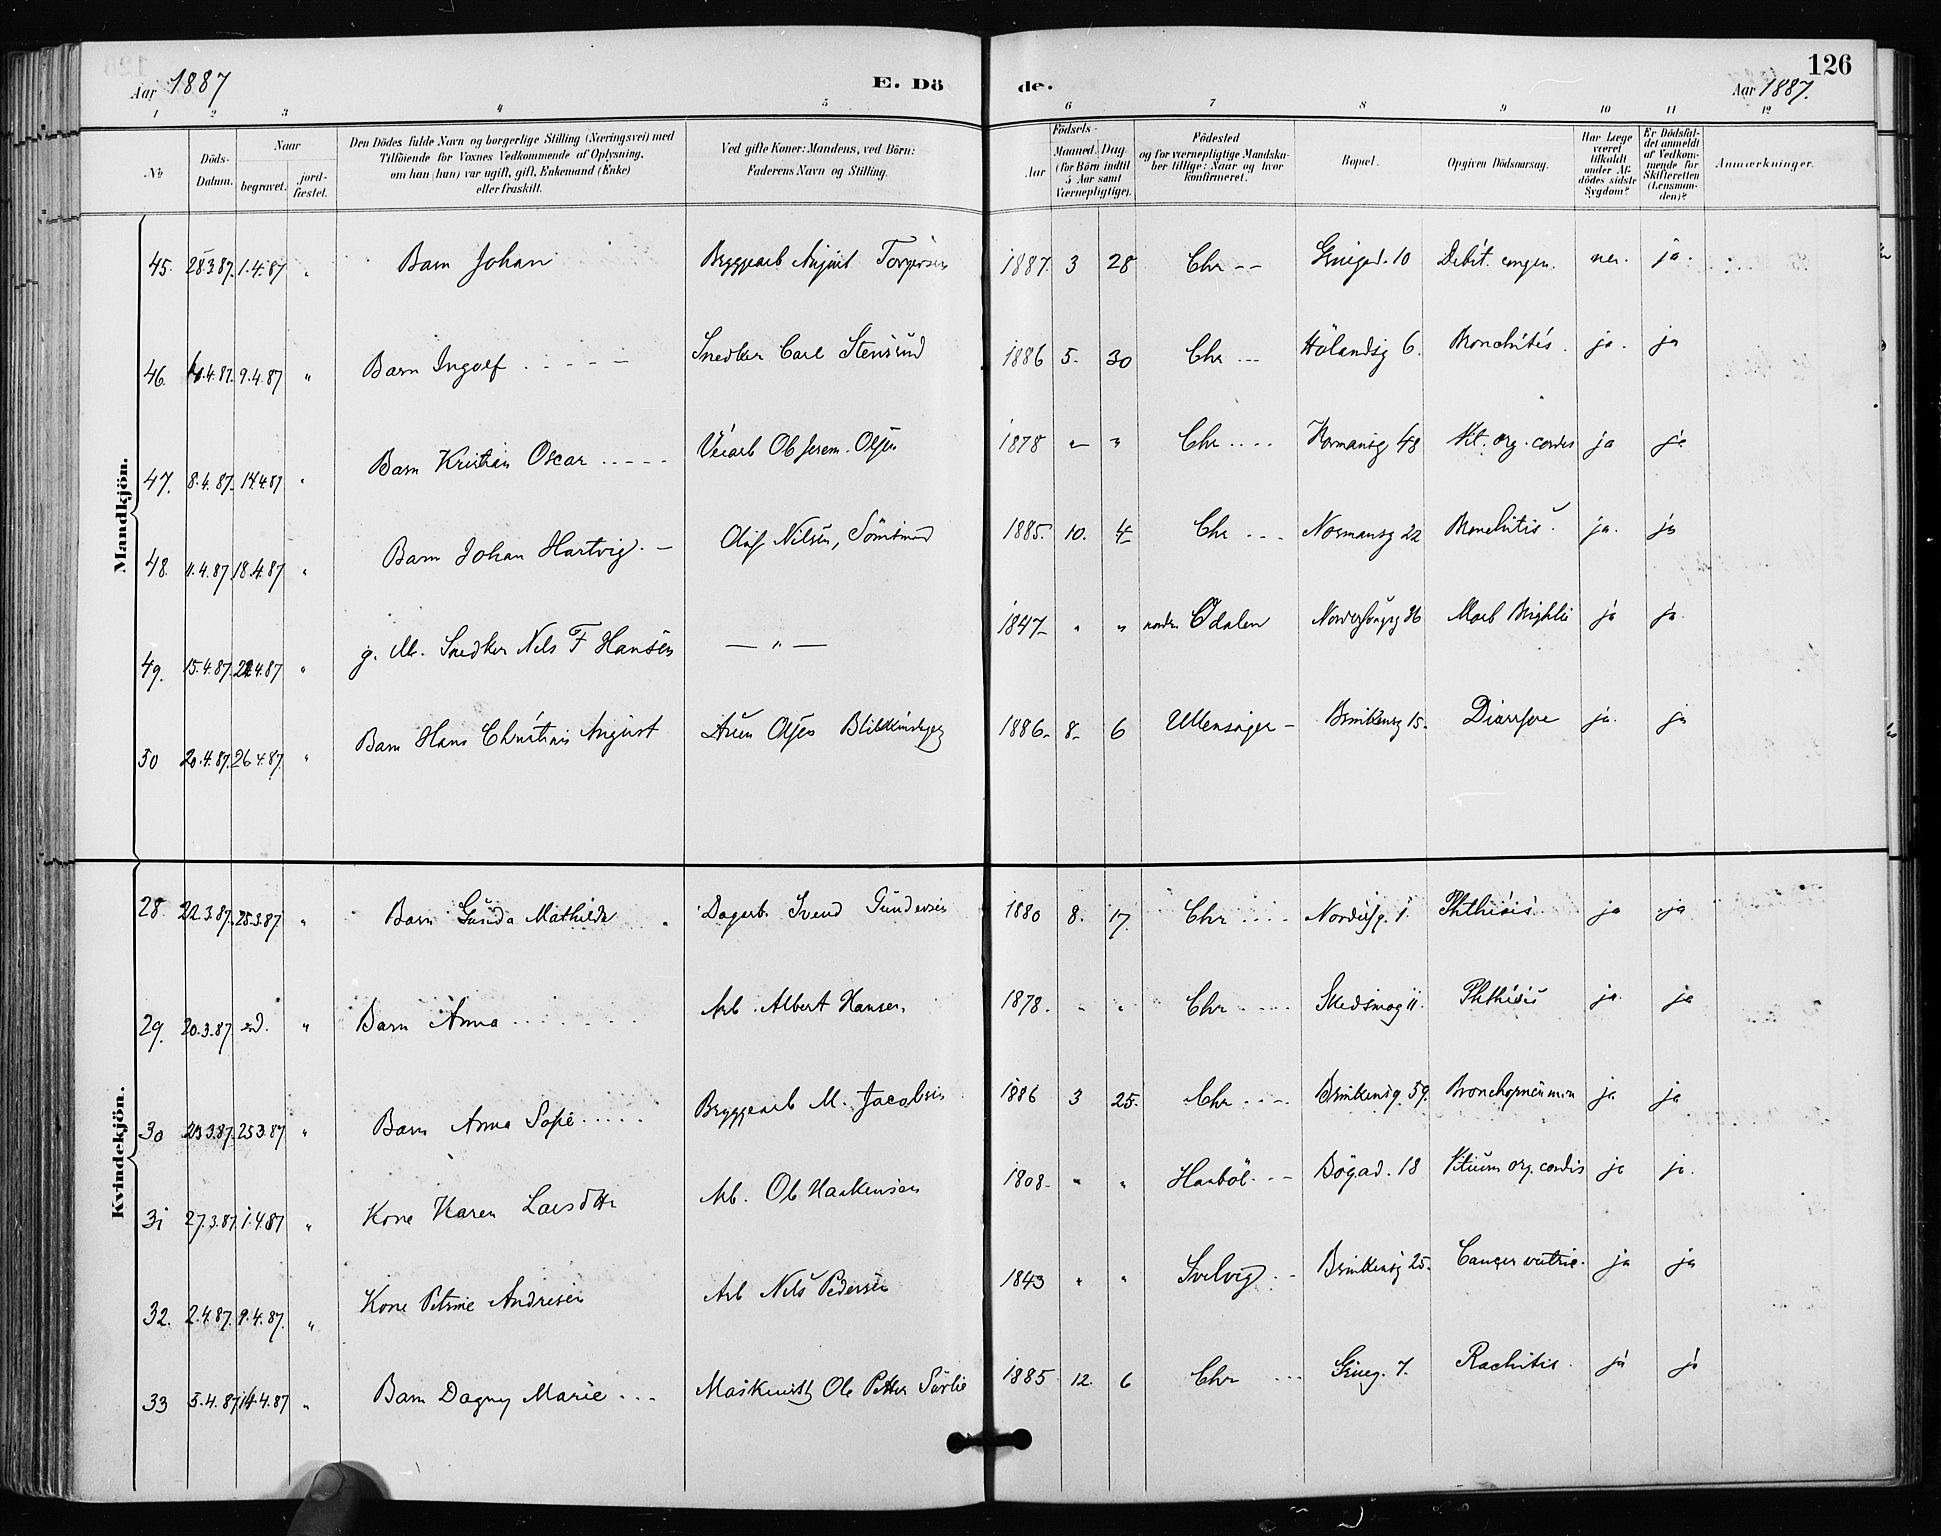 126
Aar 1887
E. Dö
de.
Aar 1887.
1 2 3 4 5 6 7 8 9 10 11 12
No
Döds-Datum.
Naar
begravet.
jord-fæstet.
Den Dödes fulde Navn og borgerlige Stilling (Næringsvei) med
Tilföiende for Voxnes Vedkommende af Oplysning,
om han (hun) var ugift, gift, Enkemand (Enke)
eller fraskilt.
Ved gifte Koner: Mandens, ved Börn:
Faderens Navn og Stilling.
Födsels-
Aar
Maaned. Dag
(for Börn indtil
5 Aar samt
Værnepligtige).
Födested
og for værnepligtige Mandska-
ber tillige: Naar og hvor
konfirmeret.
Bopæl.
Opgiven Dödsaarsag.
Har Læge
været
tilkaldt
under Af-
dödes sidste
Sygdom?
Er Dödsfal-
det anmeldt
af Vedkom-
mende for
Skifteretten
(Lensman-
den)?
Anmærkninger.
Mandkjön.
45. 28.3.87. 1.4.87 " Barn Johan Bryggearb August Torgersen 1887. 3 28 Chr -- Gruegad. 10 Debit. congen. nei. ja.
46. 4.4.87. 9.4.87 " Barn Ingolf Snedker Carl Stensrud 1886 5. 30 Chr --- Hölandsg 6. Bronchitis. ja. ja
47. 8.4.87. 14.4.87 " Barn Kristian Oscar Olsen 1878 " " Chr .... Normansg 48 Vit. org. cordis ja ja
48. 11.4.87. 18.4.87 " Barn Johan Hartvig. Olaf Nilsen, 1885. 10. 4 Chr --- Normansg 22 Bronchitis. ja. ja
49. 15.4.87. 22.4.87 " g. M. Snedker Nels F Hansen — " — 1847 " " nordr. Odalen Morb Brightii ja ja.
50 20.4.87. 26.4.87. " Barn Hans Christian August Olsen 1886 8 6 Ullensager Brinkensg 15. Diarrhoe ja. ja
Kvindekjön.
28. 22.3.87. 25.3.87. " Barn Gunda Mathilde Dagarb. Svend Gundersen 1880 8. 17. Chr .... Phthisis ja ja
29. 20.3.87 " Barn Anna Arb. Albert Hansen 1878. " " Chr .... Skedsmog 11. Phthisis ja. ja
30 23.3.87. 25.3.87 " Barn Anna Sofie Bryggearb M. Jacobsen 1886 3 25. Chr .... Brinkensg. 59. Bronchopneumon ja ja
31 27.3.87. 1.4.87 " Kone Karen Larsdttr Arb. Ole Haakensen 1808. " " Haaböl Bögad. 18 Vitium org. cordis ja ja.
32. 2.4.87. 9.4.87. " Kone Petrine Andresen Arb Nels Pedersen 1843 " " Svelvig. Brinkensg 25. Cancer uteri. ja ja
33 5.4.87 14.4.87 " Barn Dagny Marie Ole Petter Sørlie 1885 12. 6 Chr ... Grueg. 7. Rachitis. ja ja